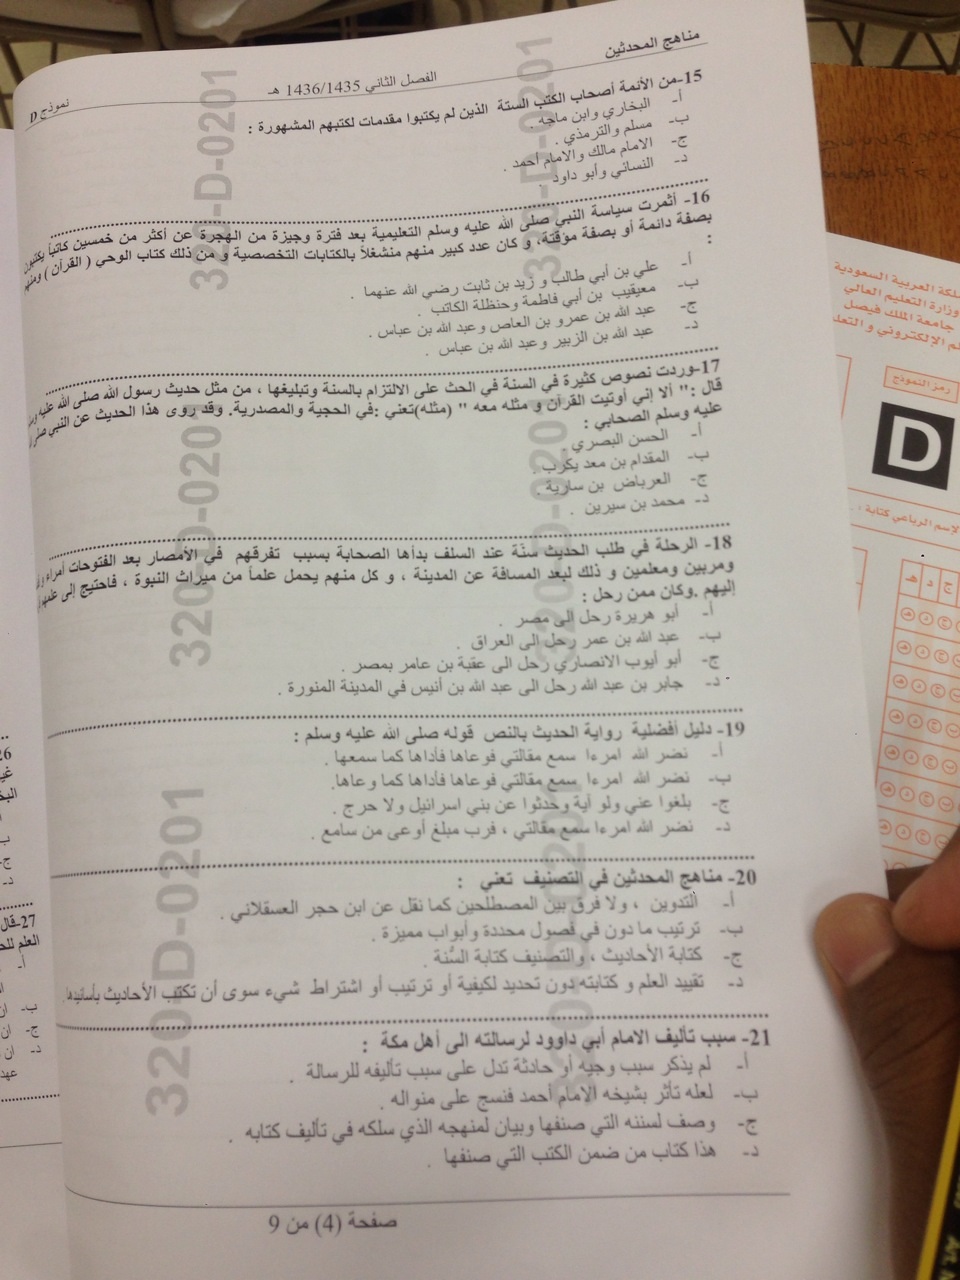 مناهج المحدثين
الفصل الثاني 1436/1435 هـ
نموذج D
15-من الأئمة أصحاب الكتب الستة الذين لم يكتبوا مقدمات لكتبهم المشهورة :
أ- البخاري وابن ماجه
ب- مسلم والترمذي .
ج- الامام مالك والامام أحمد .
د- النسائي وأبو داود
16- أثمرت سياسة النبي صلى الله عليه وسلم التعليمية بعد فترة وجيزة من الهجرة عن أكثر من خمسين كاتباً يكتبون
بصفة دائمة أو بصفة مؤقتة، و كان عدد كبير منهم منشغلاً بالكتابات التخصصية و من ذلك كتاب الوحي ( القرآن ) ومنهم
:
أ- علي بن أبي طالب و زيد بن ثابت رضي الله عنهما .
ب- معيقيب بن أبي فاطمة وحنظلة الكاتب .
ج- عبد الله بن عمرو بن العاص وعبد الله بن عباس .
د- عبد الله بن الزبير وعبد الله بن عباس .
17-وردت نصوص كثيرة في السنة في الحث على الالتزام بالسنة وتبليغها ، من مثل حديث رسول الله صلى الله عليه
قال :" ألا إني أوتيت القرآن و مثله معه " (مثله)تعني :في الحجية والمصدرية. وقد روى هذا الحديث عن النبي صلى
عليه وسلم الصحابي :
أ- الحسن البصري .
ب- المقدام بن معد يكرب .
ج- العرباض بن سارية .
د- محمد بن سيرين .
18- الرحلة في طلب الحديث سنة عند السلف بدأها الصحابة بسبب تفرقهم في الأمصار بعد الفتوحات أمراء
ومربين ومعلمين و ذلك لبعد المسافة عن المدينة ، و كل منهم يحمل علماً من ميراث النبوة ، فاحتيج إلى علمهم
إليهم .وكان ممن رحل :
أ- أبو هريرة رحل الى مصر .
ب- عبد الله بن عمر رحل الى العراق .
ج- أبو أيوب الانصاري رحل الى عقبة بن عامر بمصر .
د- جابر بن عبد الله رحل الى عبد الله بن أنيس في المدينة المنورة .
19- دليل أفضلية رواية الحديث بالنص قوله صلى الله عليه وسلم :
أ- نضر الله امرءا سمع مقالتي فوعاها فأداها كما سمعها .
ب- نضر الله امرءا سمع مقالتي فوعاها فأداها كما وعاها.
ج- بلغوا عني ولو آية وحدثوا عن بني اسرائيل ولا حرج .
د- نضر الله امرءا سمع مقالتي ، فرب مبلغ أوعى من سامع .
20- مناهج المحدثين في التصنيف تعني :
أ- التدوين ، ولا فرق بين المصطلحين كما نقل عن ابن حجر العسقلاني .
ب- ترتيب ما دون في فصول محددة وأبواب مميزة .
ج- كتابة الأحاديث ، والتصنيف كتابة السُّنة .
د- تقييد العلم و كتابته دون تحديد لكيفية أو ترتيب أو اشتراط شيء سوى أن تكتب الأحاديث بأسانيدها.
21- سبب تأليف الامام أبي داوود لرسالته الى أهل مكة :
أ- لم يذكر سبب وجيه أو حادثة تدل على سبب تأليفه للرسالة .
ب- لعله تأثر بشيخه الامام أحمد فنسج على منواله .
ج- وصف لسننه التي صنفها وبيان لمنهجه الذي سلكه في تأليف كتابه .
د- هذا كتاب من ضمن الكتب التي صنفها .
صفحة (4) من 9
320-D-0201
320-D-0201
320-D-0201
320-D-0201
320-D-0201
320-D-0201
المملكة العربية السعودية
وزارة التعليم العالي
جامعة الملك فيصل
رمز النموذج
D
الإسم الرباعي كتابة :
ج د هـ
26
27-قال